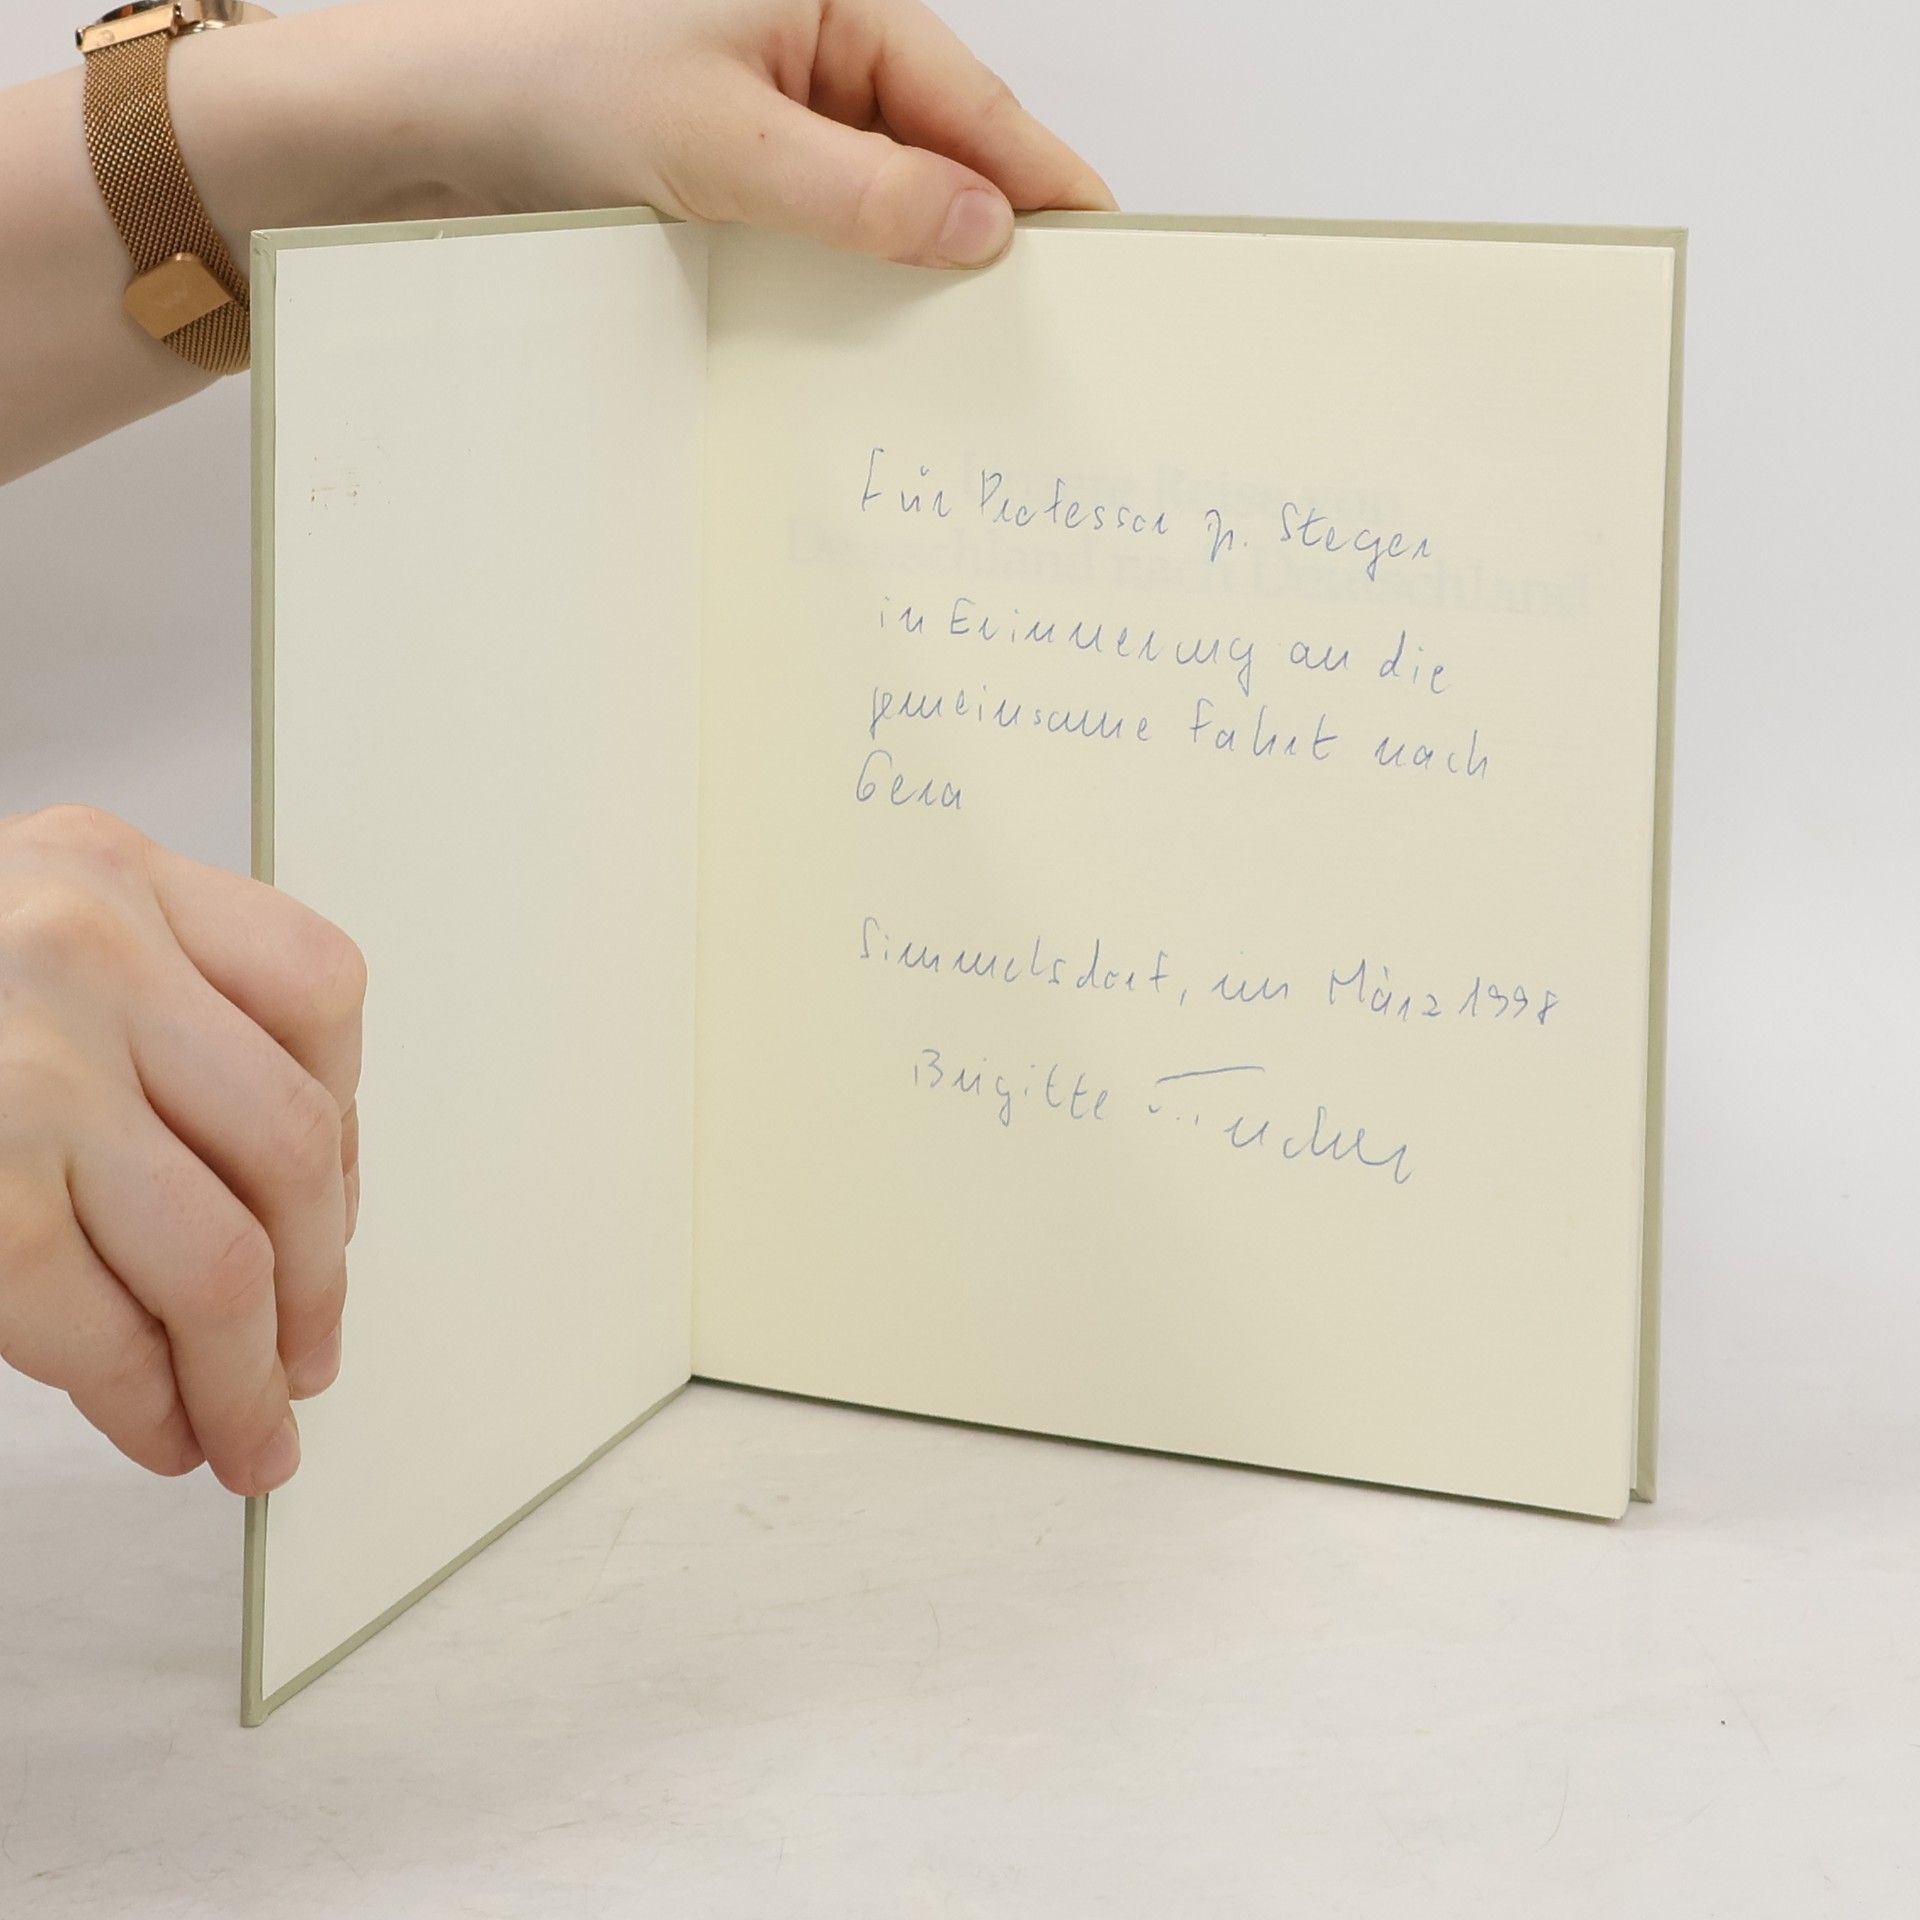 Für Professor Dr. Steger
in Erinnerung an die
gemeinsame Fahrt nach
Gera
Simmelsdorf, im März 1998
Brigitte